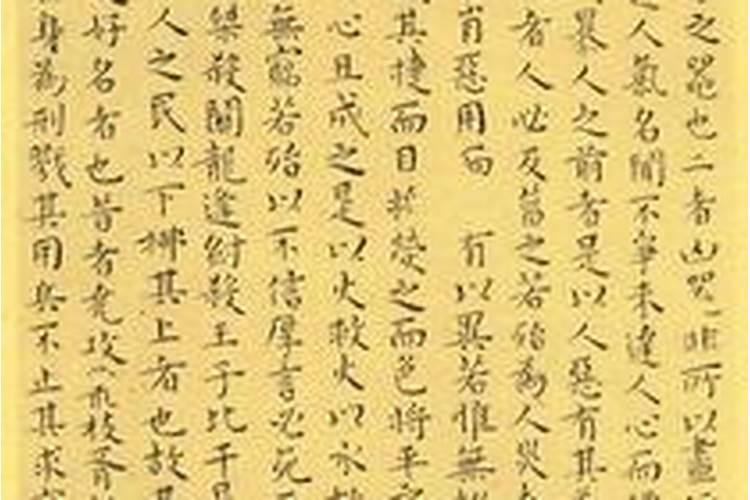 之器也二者凶器非所以盡
人氣名聞不爭未達人心而
暴人之前者是以人惡有其
者人必反菑之若殆為人災
肖惡用而 有以異若惟無
其捷而目將熒之而色將平
心且成之是以火救火以水
無窮若殆以不信厚言必死
桀殺關龍逢紂殺王子比干
人之民以下拂其上者也故
好名者也昔者堯攻叢枝胥
身為刑戮其用兵不止其求